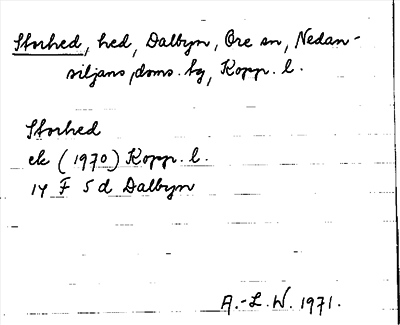 Storhed, hed, Dalbyn, Ore sn, Nedan-
siljans doms. tg, Kopp. l.
Storhed
ek (1970) Kopp. l.
14 F 5 d Dalbyn
A.-L. W. 1971.